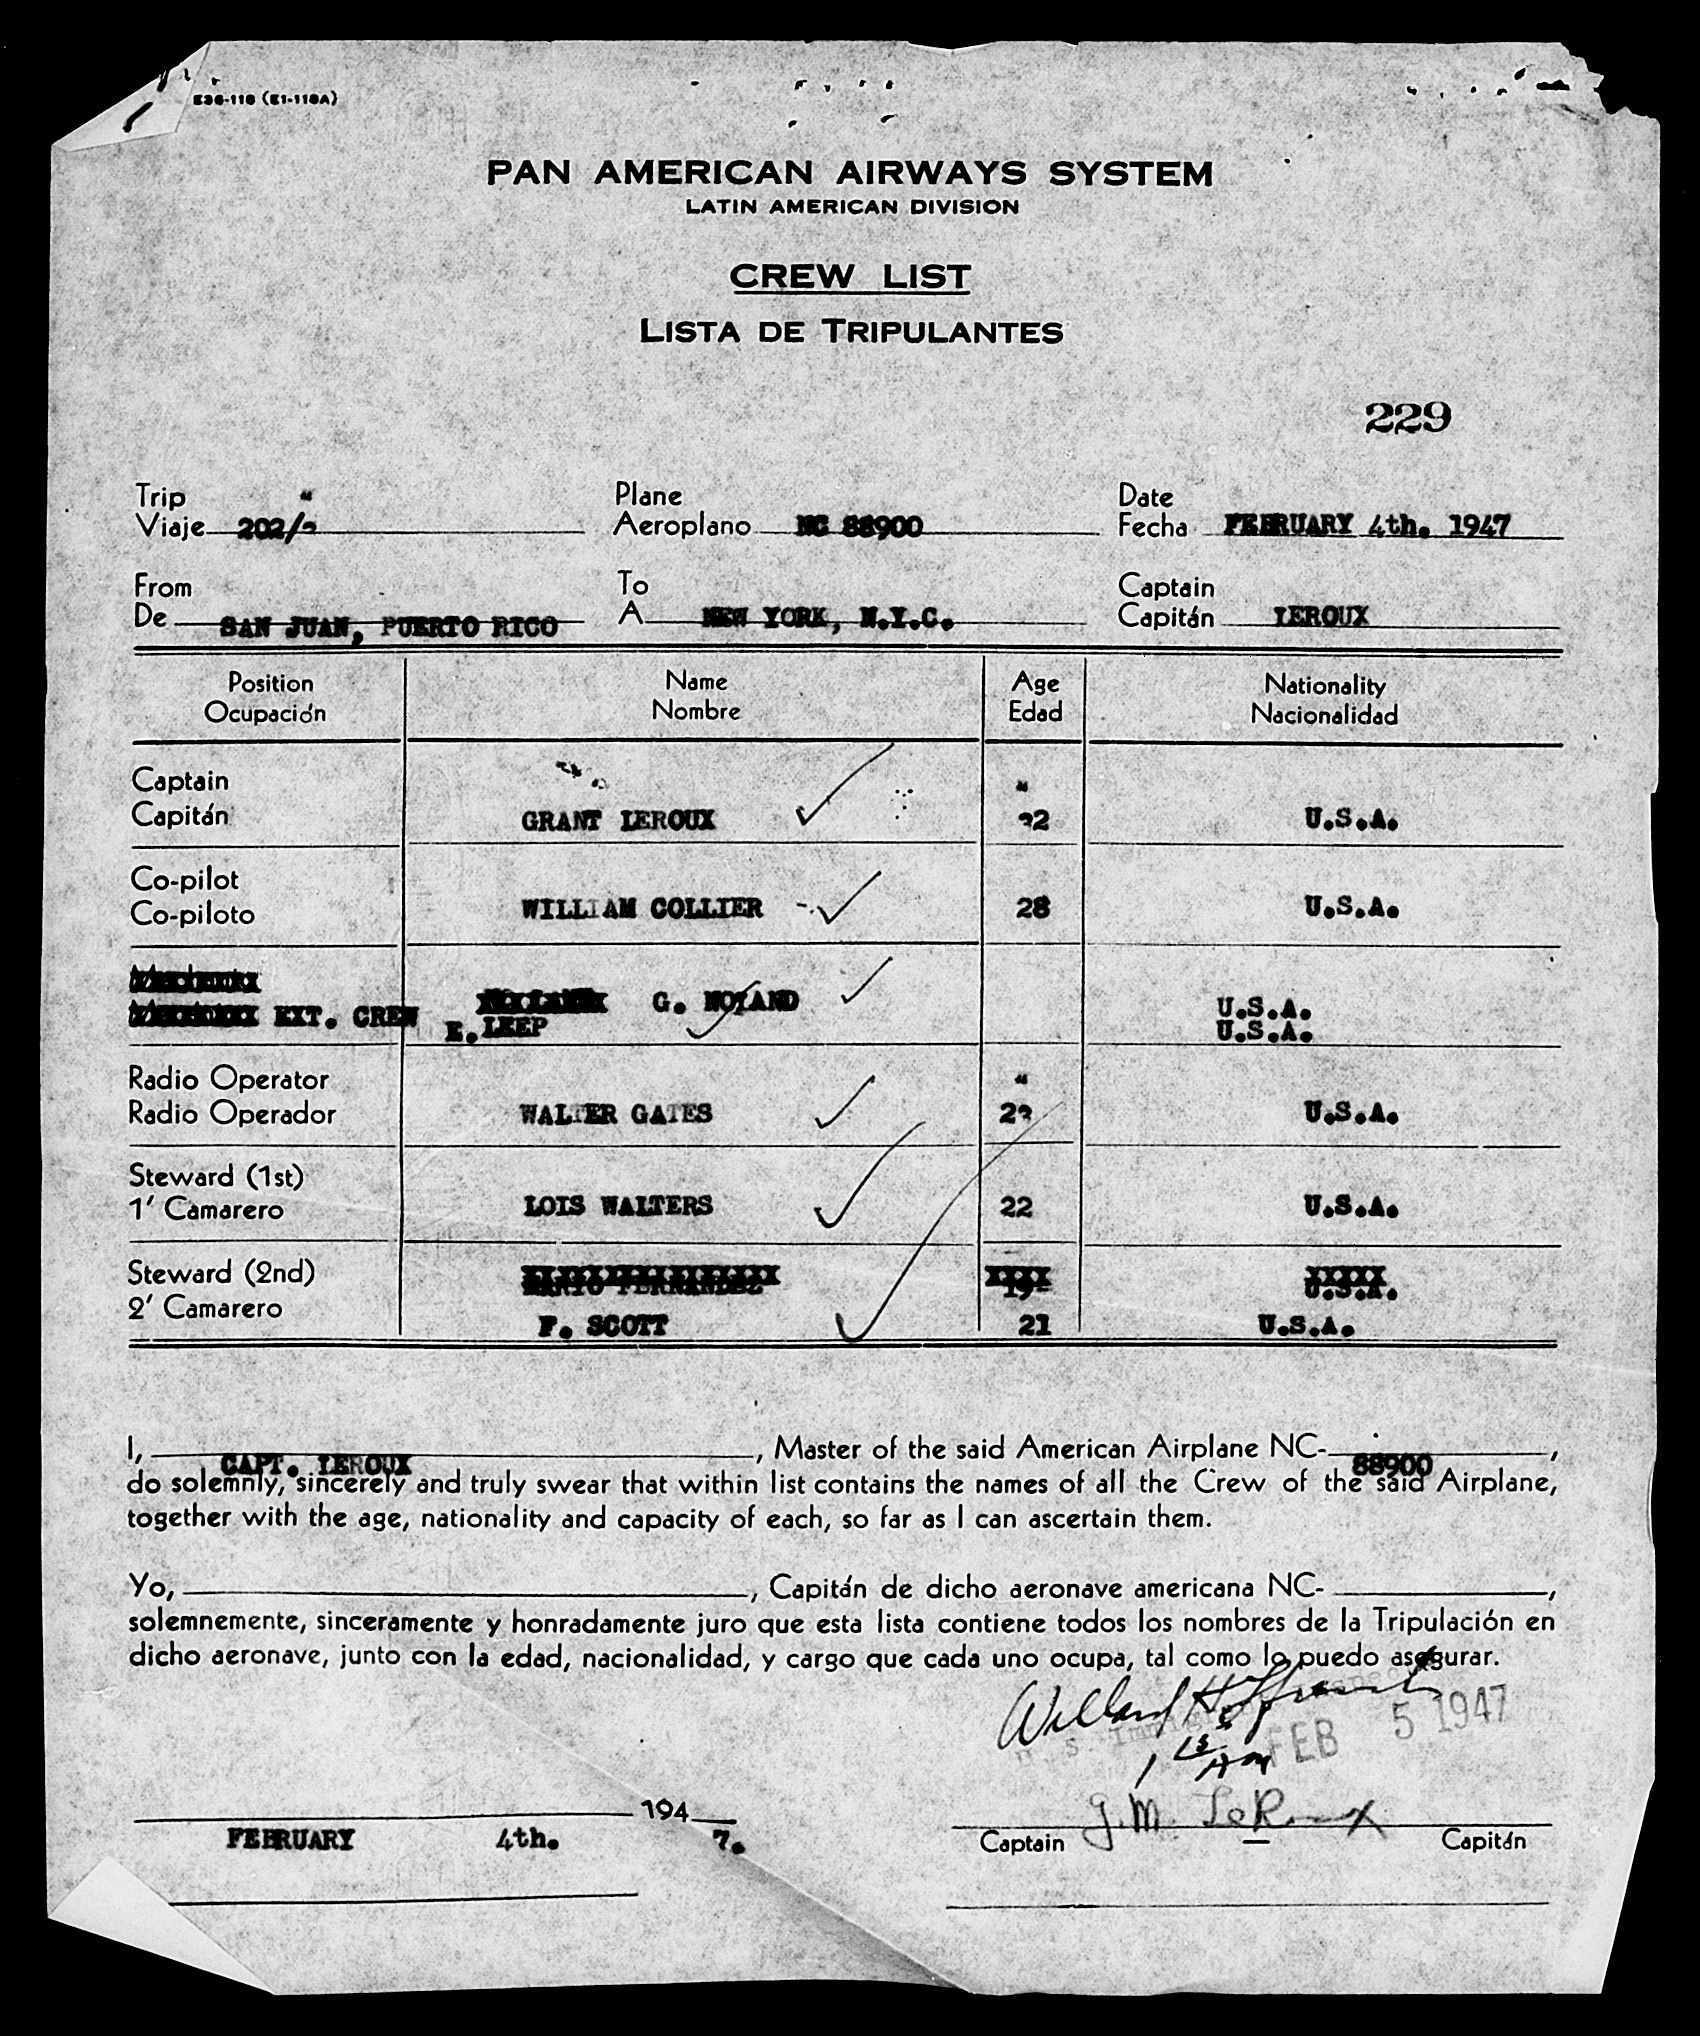 E36-118 (E1-118A)
PAN AMERICAN AIRWAYS SYSTEM
LATIN AMERICAN DIVISION
CREW LIST
LISTA DE TRIPULANTES
229
Trip
Viaje 202/3
Plane
Aeroplano NC 88900
Date
Fecha FEBRUARY 4th. 1947
From
De SAN JUAN, PUERTO RICO
To
A NEW YORK, N.Y.C.
Captain
Capitán LEROUX
Position Name Age Nationality
Ocupación Nombre Edad Nacionalidad
Captain
Capitán GRANT LEROUX 32 U.S.A.
Co-pilot
Co-piloto WILLIAM COLLIER 28 U.S.A.
EXT. CREW G. NOLAND U.S.A.
E. LEEP U.S.A.
Radio Operator
Radio Operador WALTER GATES 23 U.S.A.
Steward (1st)
1' Camarero LOIS WALTERS 22 U.S.A.
Steward (2nd)
2' Camarero
F. SCOTT 21 U.S.A.
I, CAPT. LEROUX, Master of the said American Airplane NC- 88900,
do solemnly, sincerely and truly swear that within list contains the names of all the Crew of the said Airplane,
together with the age, nationality and capacity of each, so far as I can ascertain them.
Yo, , Capitán de dicho aeronave americana NC- ,
solemnemente, sinceramente y honradamente juro que esta lista contiene todos los nombres de la Tripulación en
dicho aeronave, junto con la edad, nacionalidad, y cargo que cada uno ocupa, tal como lo puedo asegurar.
U. S. Immigrant
FEB 5 1947
194
FEBRUARY 4th. 7.
G.M. LeRoux
Captain Capitán